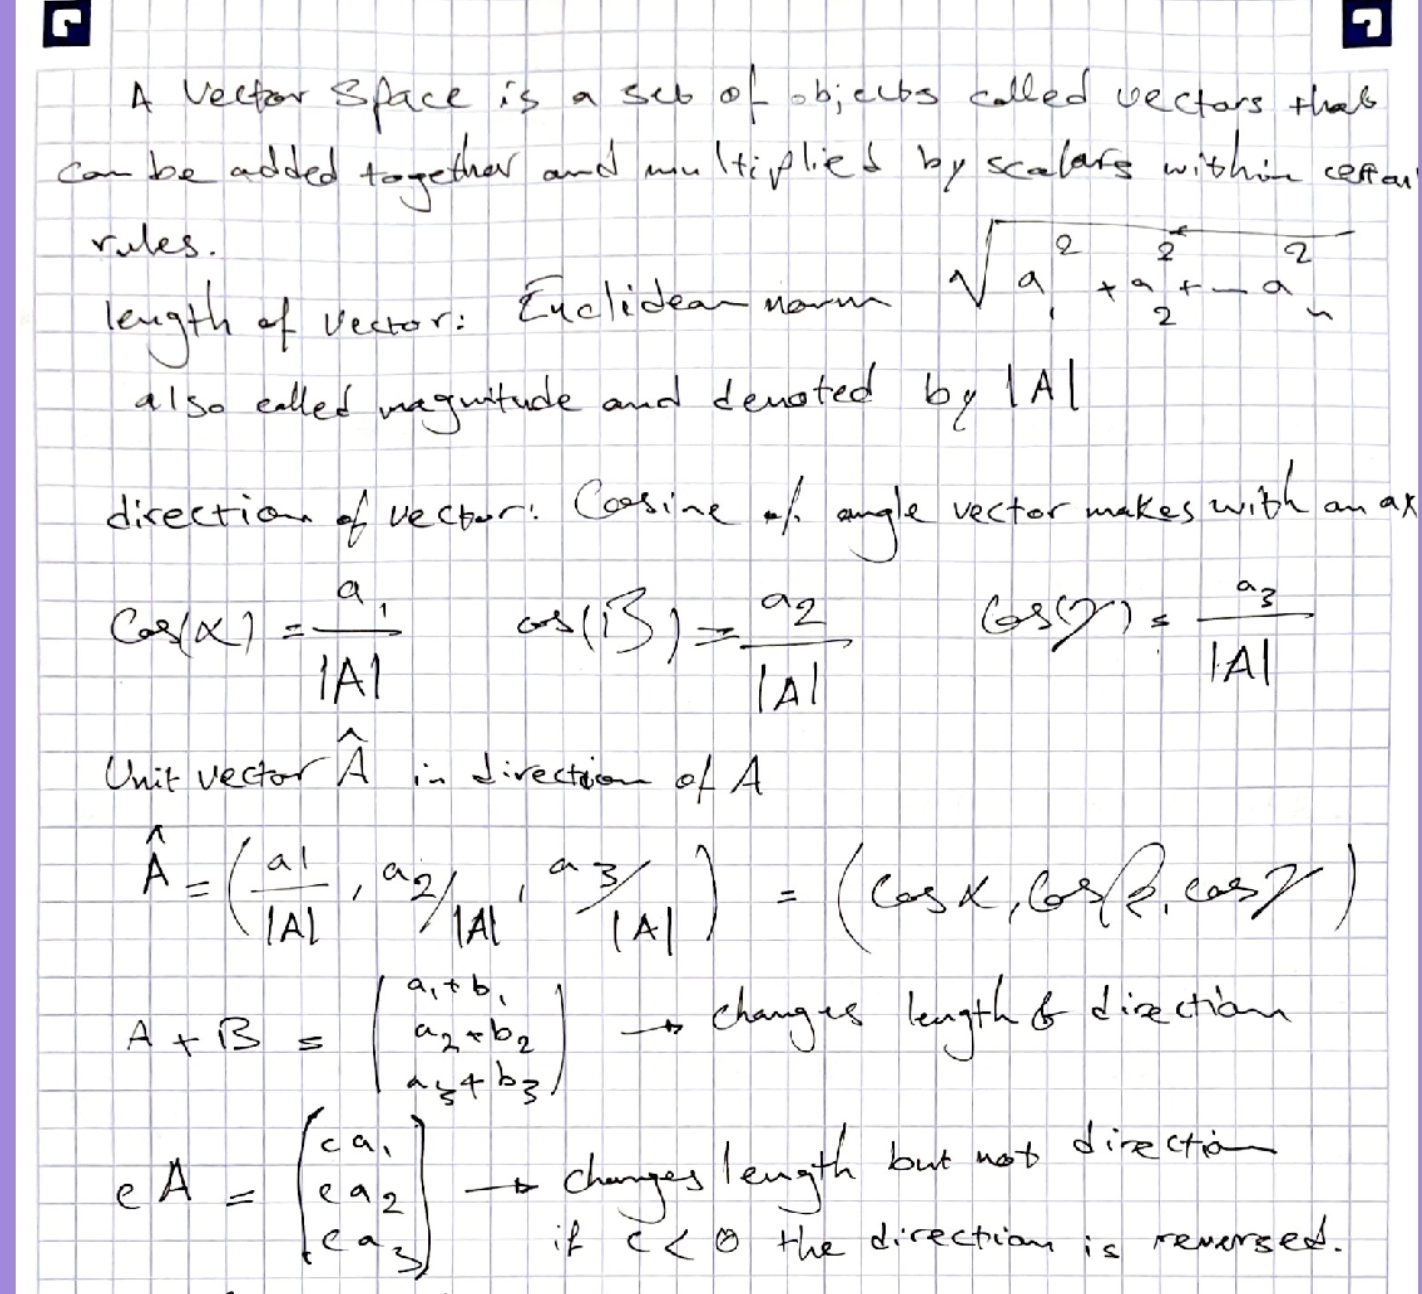 A vector space is a set of objects called vectors that
can be added together and multiplied by scalars within certai
rules.
length of vector: Euclidean norm √(a₁² + a₂² + -- aₙ²)
also called magnitude and denoted by |A|
direction of vector: Cosine of angle vector makes with an ax
Cos(α) = a₁/|A| cos(β) = a₂/|A| Cos(γ) = a₃/|A|
Unit vector Â in direction of A
Â = (a1/|A|, a2/|A|, a3/|A|) = (cos α, cos β, cos γ)
A + B = (a₁+b₁ a₂+b₂ a₃+b₃) → changes length & direction
cA = (ca₁ ca₂ ca₃) → changes length but not direction
if c<0 the direction is reversed.